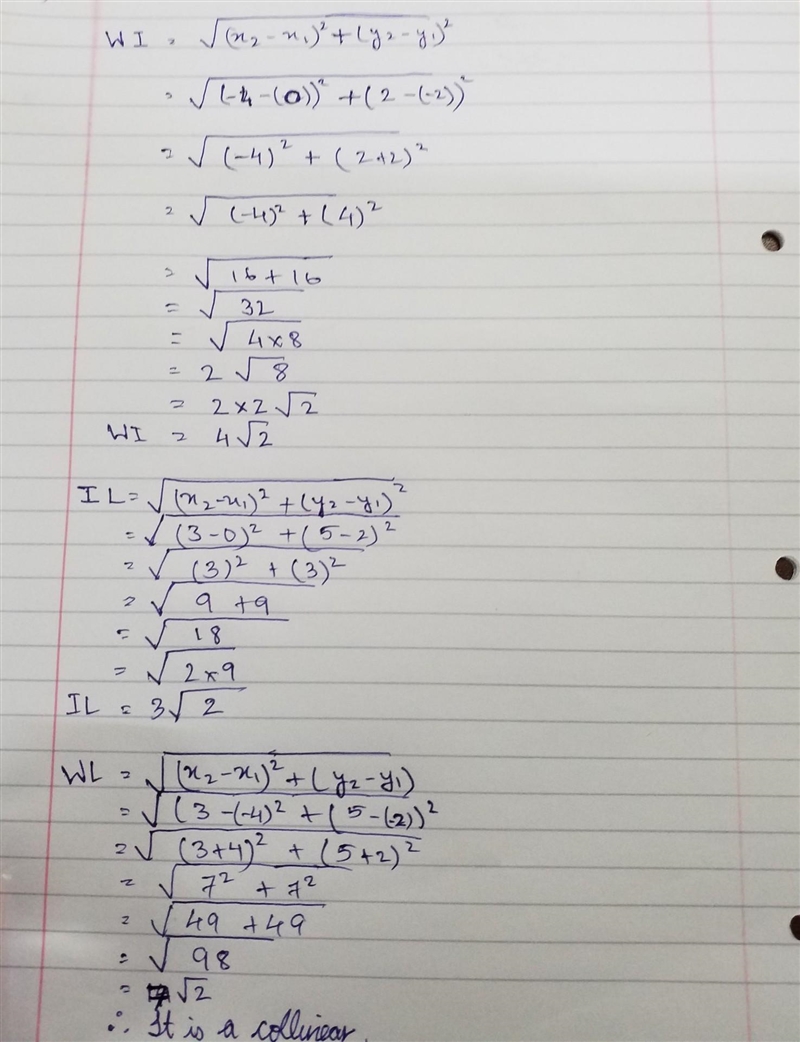 WI = √(x₂ - x₁)² + (y₂ - y₁)²
= √(-4 - (0))² + (2 - (-2))²
= √(-4)² + (2+2)²
= √(-4)² + (4)²
= √16 + 16
= √32
= √4×8
= 2 √8
= 2×2√2
WI = 4√2
IL = √(x₂-x₁)² + (y₂-y₁)²
= √(3-0)² + (5-2)²
= √(3)² + (3)²
= √9 + 9
= √18
= √2×9
IL = 3√2
WL = √(x₂-x₁)² + (y₂-y₁)
= √(3-(-4)² + (5-(-2))²
= √(3+4)² + (5+2)²
= √7² + 7²
= √49 + 49
= √98
= 7√2
∴ It is a collinear.